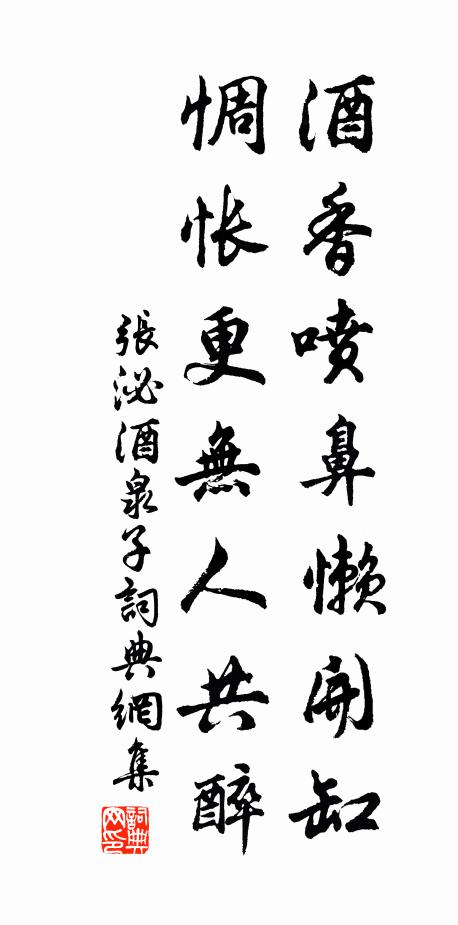 酒香喷鼻懒開缸
惆怅更無人共醉
張泌酒泉子詞典網集
詞典網印